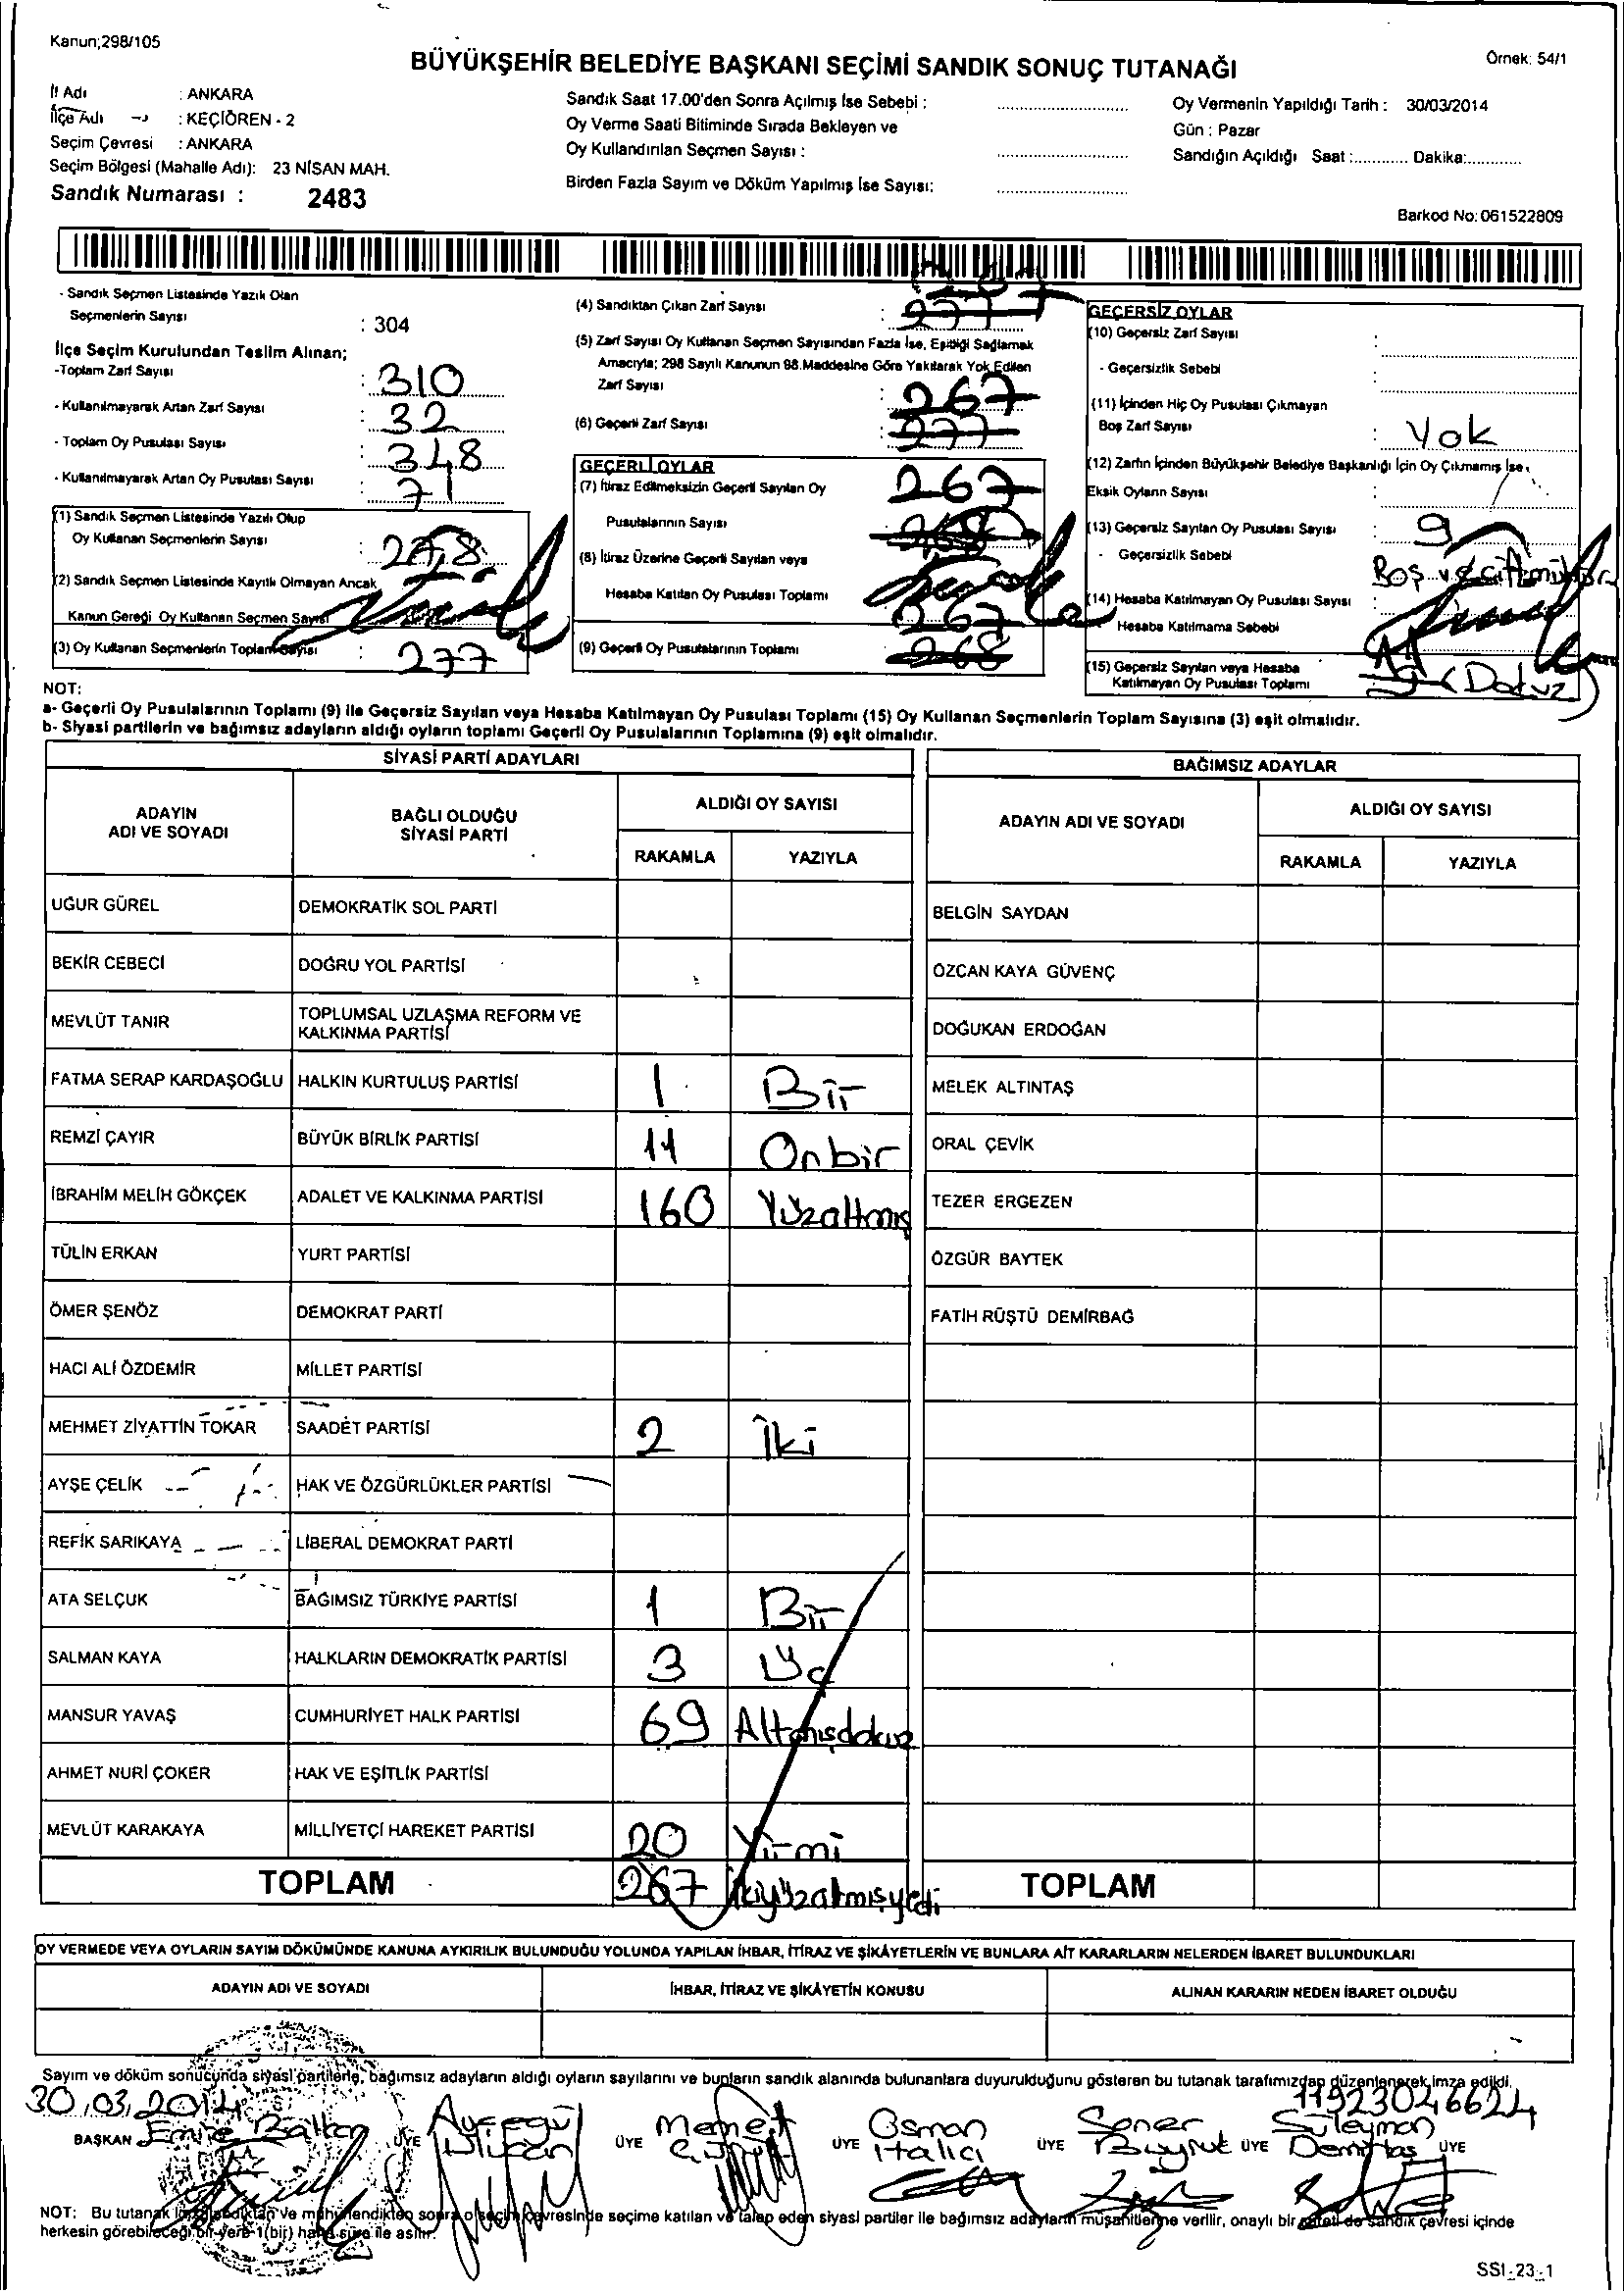 Kanun;298/105
BÜYÜKŞEHİR BELEDİYE BAŞKANI SEÇİMİ SANDIK SONUÇ TUTANAĞI
Örnek: 54/1
İl Adı : ANKARA
İlçe Adı : KEÇİÖREN - 2
Seçim Çevresi : ANKARA
Seçim Bölgesi (Mahalle Adı): 23 NİSAN MAH.
Sandık Numarası : 2483
Sandık Saat 17.00'den Sonra Açılmış İse Sebebi :
Oy Verme Saati Bitiminde Sırada Bekleyen ve
Oy Kullandırılan Seçmen Sayısı :
Birden Fazla Sayım ve Döküm Yapılmış İse Sayısı:
Oy Vermenin Yapıldığı Tarih : 30/03/2014
Gün : Pazar
Sandığın Açıldığı Saat :............ Dakika:...........
Barkod No: 061522809
- Sandık Seçmen Listesinde Yazılı Olan
Seçmenlerin Sayısı : 304
İlçe Seçim Kurulundan Teslim Alınan;
-Toplam Zarf Sayısı : 310
- Kullanılmayarak Artan Zarf Sayısı : 32
- Toplam Oy Pusulası Sayısı : 348
- Kullanılmayarak Artan Oy Pusulası Sayısı : 71
(1) Sandık Seçmen Listesinde Yazılı Olup
Oy Kullanan Seçmenlerin Sayısı : 278
(2) Sandık Seçmen Listesinde Kayıtlı Olmayan Ancak
Kanun Gereği Oy Kullanan Seçmen Sayısı
(3) Oy Kullanan Seçmenlerin Toplam Sayısı : 277
(4) Sandıktan Çıkan Zarf Sayısı : 277
(5) Zarf Sayısı Oy Kullanan Seçmen Sayısından Fazla İse, Eşitliği Sağlamak
Amacıyla; 298 Sayılı Kanunun 98.Maddesine Göre Yakılarak Yok Edilen
Zarf Sayısı
267
(6) Geçerli Zarf Sayısı : 277
GEÇERLİ OYLAR
(7) İtiraz Edilmeksizin Geçerli Sayılan Oy
Pusulalarının Sayısı
267
268
(8) İtiraz Üzerine Geçerli Sayılan veya
Hesaba Katılan Oy Pusulası Toplamı
267
(9) Geçerli Oy Pusulalarının Toplamı : 268
GEÇERSİZ OYLAR
(10) Geçersiz Zarf Sayısı :
- Geçersizlik Sebebi :
(11) İçinden Hiç Oy Pusulası Çıkmayan
Boş Zarf Sayısı : Yok
(12) Zarfın İçinden Büyükşehir Belediye Başkanlığı İçin Oy Çıkmamış İse,
Eksik Oyların Sayısı :
(13) Geçersiz Sayılan Oy Pusulası Sayısı : 9
- Geçersizlik Sebebi : Boş ve çift mühür
(14) Hesaba Katılmayan Oy Pusulası Sayısı :
Hesaba Katılmama Sebebi
(15) Geçersiz Sayılan veya Hesaba
Katılmayan Oy Pusulası Toplamı : 9 (Dokuz)
NOT:
a- Geçerli Oy Pusulalarının Toplamı (9) ile Geçersiz Sayılan veya Hesaba Katılmayan Oy Pusulası Toplamı (15) Oy Kullanan Seçmenlerin Toplam Sayısına (3) eşit olmalıdır.
b- Siyasi partilerin ve bağımsız adayların aldığı oyların toplamı Geçerli Oy Pusulalarının Toplamına (9) eşit olmalıdır.
SİYASİ PARTİ ADAYLARI
ADAYIN ADI VE SOYADI BAĞLI OLDUĞU SİYASİ PARTİ ALDIĞI OY SAYISI
RAKAMLA YAZIYLA
UĞUR GÜREL DEMOKRATİK SOL PARTİ
BEKİR CEBECİ DOĞRU YOL PARTİSİ
MEVLÜT TANIR TOPLUMSAL UZLAŞMA REFORM VE KALKINMA PARTİSİ
FATMA SERAP KARDAŞOĞLU HALKIN KURTULUŞ PARTİSİ 1 Bir
REMZİ ÇAYIR BÜYÜK BİRLİK PARTİSİ 11 Onbir
İBRAHİM MELİH GÖKÇEK ADALET VE KALKINMA PARTİSİ 160 Yüzaltmış
TÜLİN ERKAN YURT PARTİSİ
ÖMER ŞENÖZ DEMOKRAT PARTİ
HACI ALİ ÖZDEMİR MİLLET PARTİSİ
MEHMET ZİYATTİN TOKAR SAADET PARTİSİ 2 İki
AYŞE ÇELİK HAK VE ÖZGÜRLÜKLER PARTİSİ
REFİK SARIKAYA LİBERAL DEMOKRAT PARTİ
ATA SELÇUK BAĞIMSIZ TÜRKİYE PARTİSİ 1 Bir
SALMAN KAYA HALKLARIN DEMOKRATİK PARTİSİ 3 Üç
MANSUR YAVAŞ CUMHURİYET HALK PARTİSİ 69 Altmışdokuz
AHMET NURİ ÇOKER HAK VE EŞİTLİK PARTİSİ
MEVLÜT KARAKAYA MİLLİYETÇİ HAREKET PARTİSİ 20 Yirmi
TOPLAM 267 İkiyüzatmışyedi
BAĞIMSIZ ADAYLAR
ADAYIN ADI VE SOYADI ALDIĞI OY SAYISI
RAKAMLA YAZIYLA
BELGİN SAYDAN
ÖZCAN KAYA GÜVENÇ
DOĞUKAN ERDOĞAN
MELEK ALTINTAŞ
ORAL ÇEVİK
TEZER ERGEZEN
ÖZGÜR BAYTEK
FATİH RÜŞTÜ DEMİRBAĞ
TOPLAM
OY VERMEDE VEYA OYLARIN SAYIM DÖKÜMÜNDE KANUNA AYKIRILIK BULUNDUĞU YOLUNDA YAPILAN İHBAR, İTİRAZ VE ŞİKÂYETLERİN VE BUNLARA AİT KARARLARIN NELERDEN İBARET BULUNDUKLARI
ADAYIN ADI VE SOYADI İHBAR, İTİRAZ VE ŞİKÂYETİN KONUSU ALINAN KARARIN NEDEN İBARET OLDUĞU
Sayım ve döküm sonucunda siyasi partilerle, bağımsız adayların aldığı oyların sayılarını ve bunların sandık alanında bulunanlara duyurulduğunu gösteren bu tutanak tarafımızdan düzenlenerek imza edildi.
30.03.2014 11923046624
BAŞKAN Emre ÜYE Ayşegül ÜYE Memet ÜYE Osman Italici ÜYE Soner Buyruk ÜYE Süleyman Demirtaş ÜYE
NOT: Bu tutanak imzalandıktan ve mühürlendikten sonra o seçim çevresinde seçime katılan ve talep eden siyasi partiler ile bağımsız adayların müşahitlerine verilir, onaylı bir sureti de sandık çevresi içinde
herkesin görebileceği bir yere 1(bir) hafta süre ile asılır.
SSI-23-1